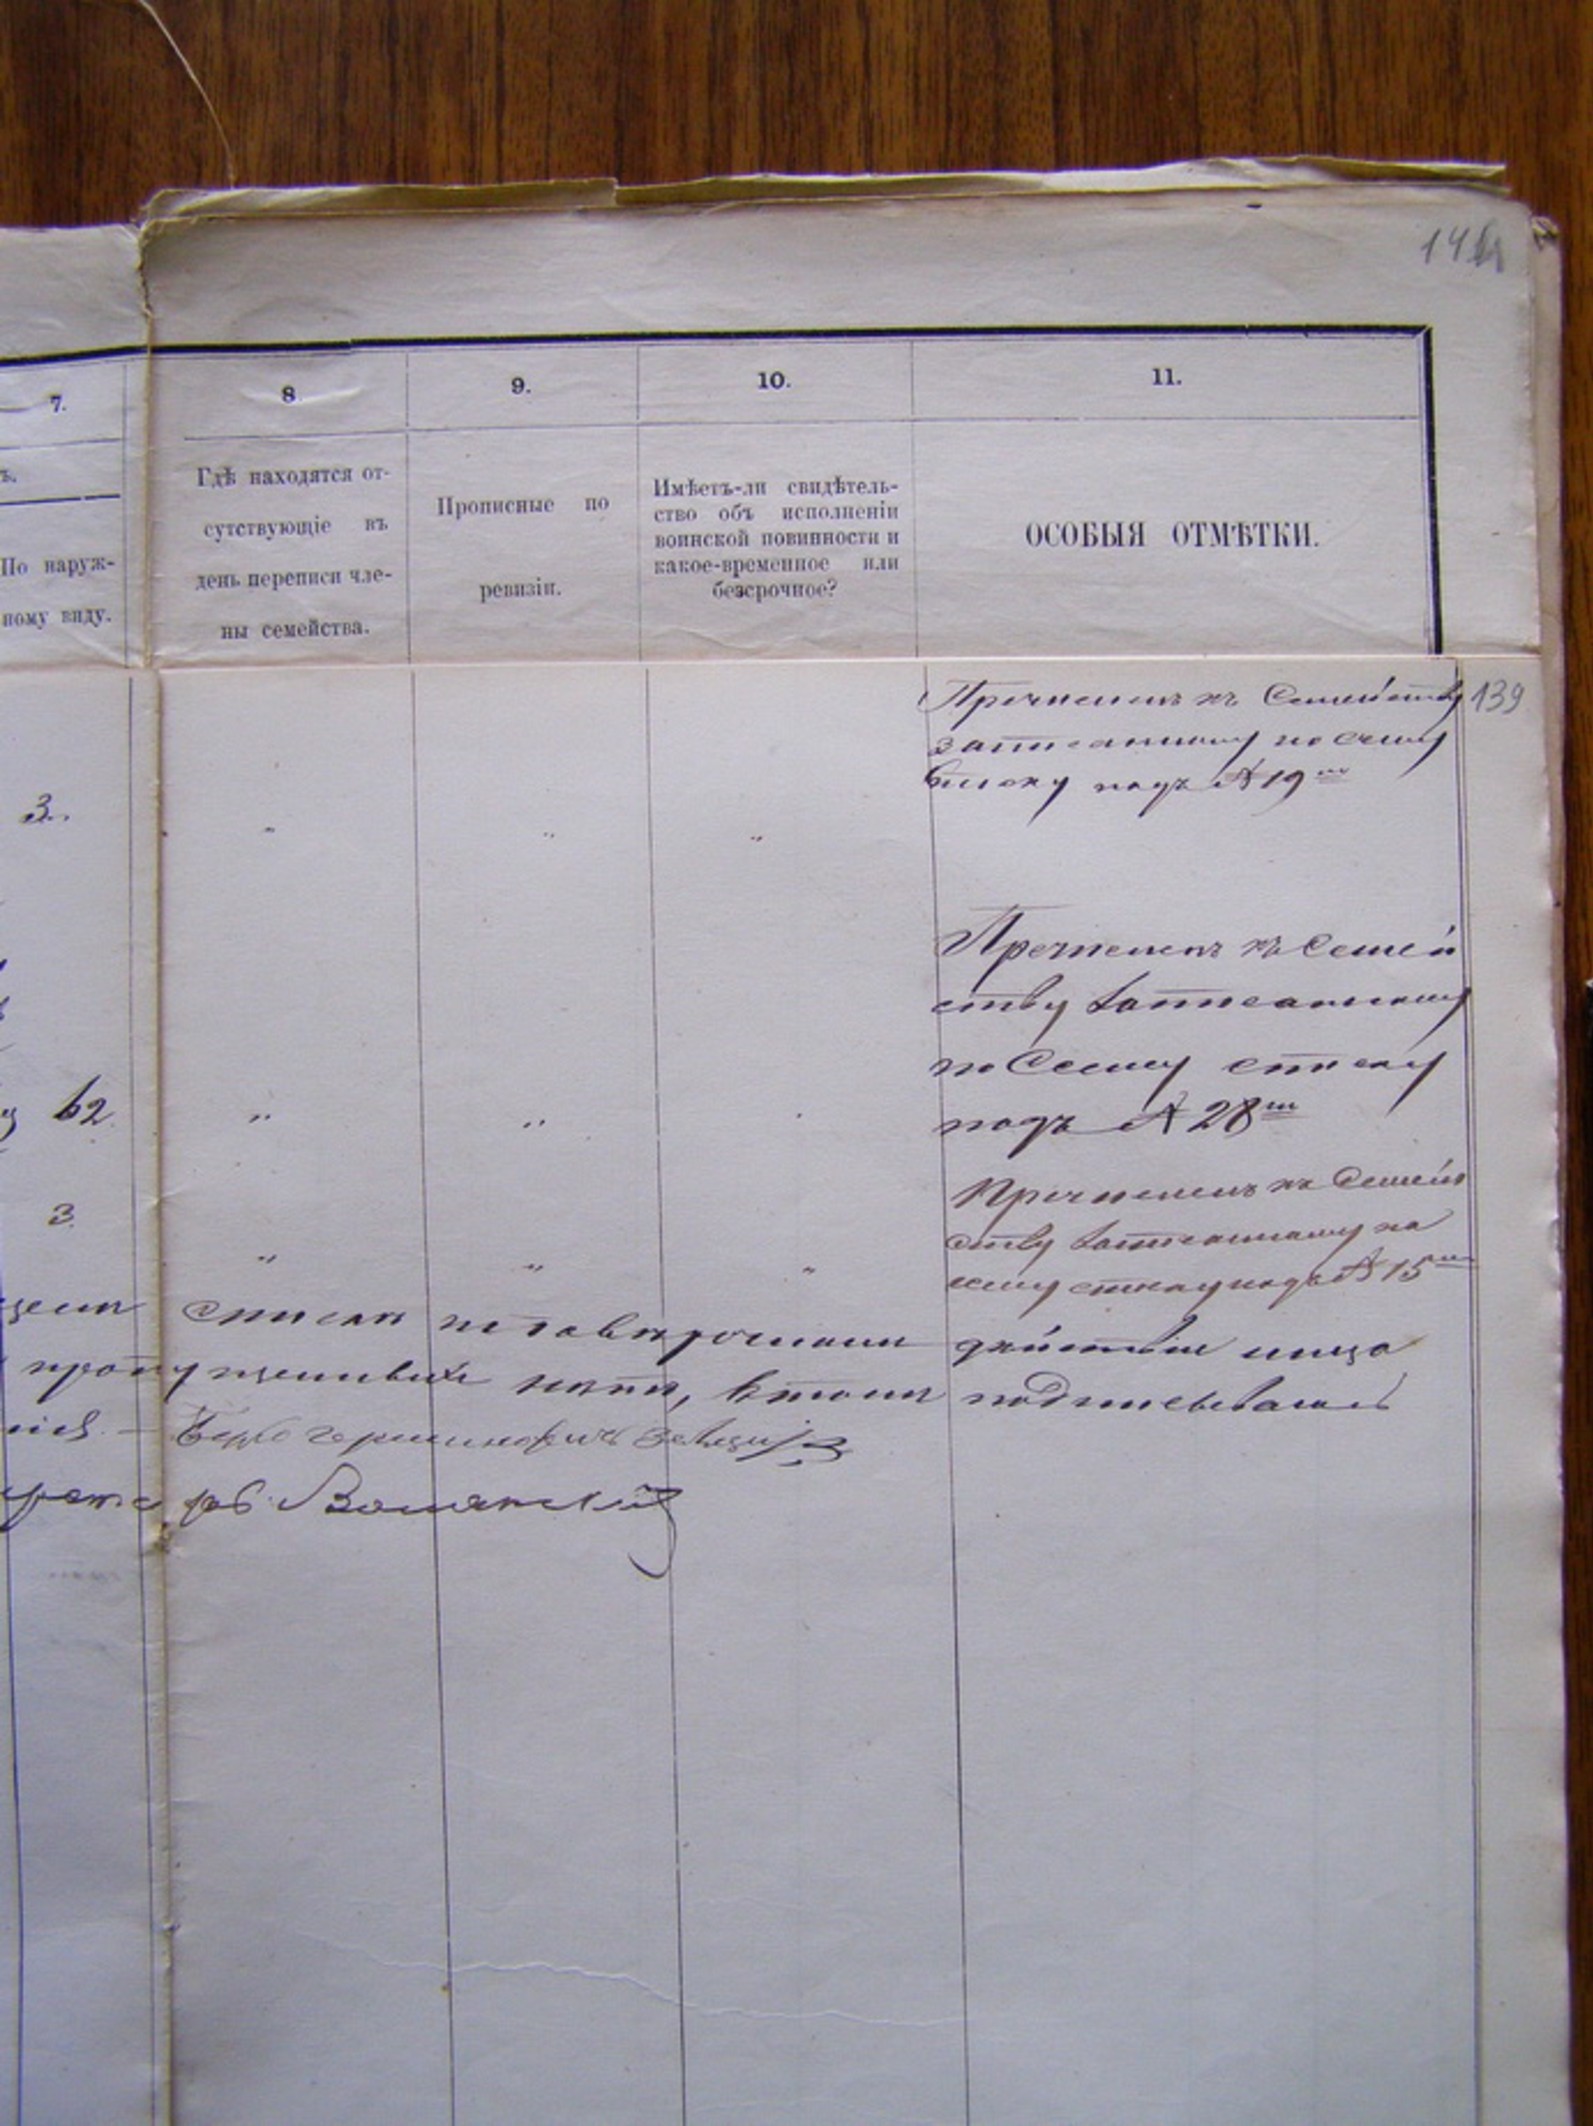 144
7.
8
9.
10.
11.
ъ.
По наруж-
ному виду.
Гдѣ находятся от-
сутствующіе въ
день переписи чле-
ны семейства.
Прописные по
ревизіи.
Имѣетъ-ли свидѣтель-
ство объ исполненіи
воинской повинности и
какое-временное или
безсрочное?
ОСОБЫЯ ОТМѢТКИ.
139
Причисленъ къ Семейству
записанному по сему
списку подъ № 19ᵐ
3.
Причисленъ къ Семей
ству записанному
по Сему списку
подъ № 28ᵐ
62
Причисленъ къ Семей
ству записанному по
сему списку подъ № 15ᵐ
3.
списки
действіе лица
пропущенныхъ нѣтъ, въ томъ подписываемся